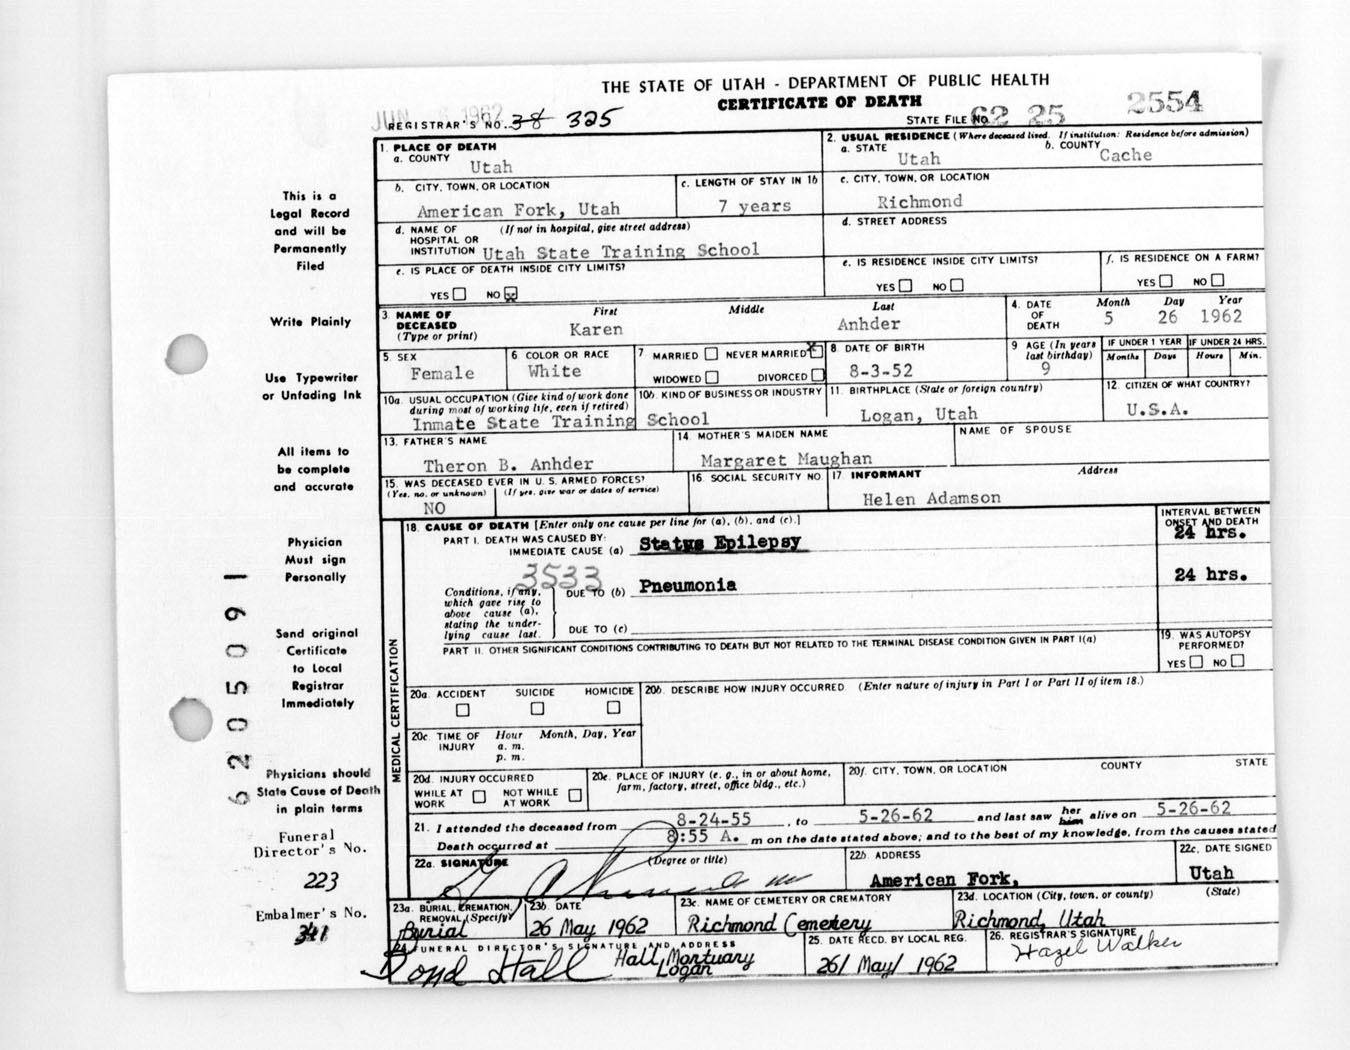 THE STATE OF UTAH - DEPARTMENT OF PUBLIC HEALTH
CERTIFICATE OF DEATH
JUN 1962
REGISTRAR'S NO. 38 325
STATE FILE NO. 62 25 2554
This is a
Legal Record
and will be
Permanently
Filed
Write Plainly
Use Typewriter
or Unfading Ink
All items to
be complete
and accurate
Physician
Must sign
Personally
Send original
Certificate
to Local
Registrar
Immediately
Physicians should
State Cause of Death
in plain terms
Funeral
Director's No.
223
Embalmer's No.
341
6205091
1. PLACE OF DEATH
a. COUNTY
Utah
2. USUAL RESIDENCE (Where deceased lived. If institution: Residence before admission)
a. STATE
Utah
b. COUNTY
Cache
b. CITY, TOWN, OR LOCATION
American Fork, Utah
c. LENGTH OF STAY IN 1b
7 years
c. CITY, TOWN, OR LOCATION
Richmond
d. NAME OF (If not in hospital, give street address)
HOSPITAL OR
INSTITUTION Utah State Training School
d. STREET ADDRESS
e. IS PLACE OF DEATH INSIDE CITY LIMITS?
YES NO
e. IS RESIDENCE INSIDE CITY LIMITS?
YES NO
f. IS RESIDENCE ON A FARM?
YES NO
3 NAME OF DECEASED
(Type or print)
First Middle Last
Karen Anhder
4. DATE OF DEATH
Month Day Year
5 26 1962
5. SEX
Female
6 COLOR OR RACE
White
7 MARRIED NEVER MARRIED X
WIDOWED DIVORCED
8. DATE OF BIRTH
8-3-52
9 AGE (In years last birthday)
9
IF UNDER 1 YEAR
Months Days
IF UNDER 24 HRS.
Hours Min.
10a. USUAL OCCUPATION (Give kind of work done
during most of working life, even if retired)
10b. KIND OF BUSINESS OR INDUSTRY
Inmate State Training School
11. BIRTHPLACE (State or foreign country)
Logan, Utah
12. CITIZEN OF WHAT COUNTRY?
U.S.A.
13. FATHER'S NAME
Theron B. Anhder
14. MOTHER'S MAIDEN NAME
Margaret Maughan
NAME OF SPOUSE
15. WAS DECEASED EVER IN U.S. ARMED FORCES?
(Yes, no, or unknown) (If yes, give war or dates of service)
NO
16. SOCIAL SECURITY NO.
17. INFORMANT Address
Helen Adamson
18. CAUSE OF DEATH [Enter only one cause per line for (a), (b), and (c).]
PART I. DEATH WAS CAUSED BY:
IMMEDIATE CAUSE (a) Status Epilepsy
INTERVAL BETWEEN
ONSET AND DEATH
24 hrs.
3533
Conditions, if any,
which gave rise to
above cause (a),
stating the under-
lying cause last.
DUE TO (b) Pneumonia
24 hrs.
DUE TO (c)
PART II. OTHER SIGNIFICANT CONDITIONS CONTRIBUTING TO DEATH BUT NOT RELATED TO THE TERMINAL DISEASE CONDITION GIVEN IN PART I(a)
19. WAS AUTOPSY PERFORMED?
YES NO
MEDICAL CERTIFICATION
20a. ACCIDENT SUICIDE HOMICIDE
20b. DESCRIBE HOW INJURY OCCURRED (Enter nature of injury in Part I or Part II of item 18.)
20c. TIME OF INJURY
Hour Month, Day, Year
a. m.
p. m.
20d. INJURY OCCURRED
WHILE AT WORK NOT WHILE AT WORK
20e. PLACE OF INJURY (e. g., in or about home,
farm, factory, street, office bldg., etc.)
20f. CITY, TOWN, OR LOCATION COUNTY STATE
21. I attended the deceased from 8-24-55, to 5-26-62 and last saw her him alive on 5-26-62
Death occurred at 8:55 A. m on the date stated above; and to the best of my knowledge, from the causes stated
22a. SIGNATURE (Degree or title)
22b. ADDRESS
American Fork,
22c. DATE SIGNED
Utah
23a. BURIAL, CREMATION,
REMOVAL (Specify)
Burial
23b. DATE
26 May 1962
23c. NAME OF CEMETERY OR CREMATORY
Richmond Cemetery
23d. LOCATION (City, town, or county) (State)
Richmond, Utah
24. FUNERAL DIRECTOR'S SIGNATURE AND ADDRESS
Hall Hall Mortuary
Logan
25. DATE RECD. BY LOCAL REG.
26/ May/ 1962
26. REGISTRAR'S SIGNATURE
Hazel Walker